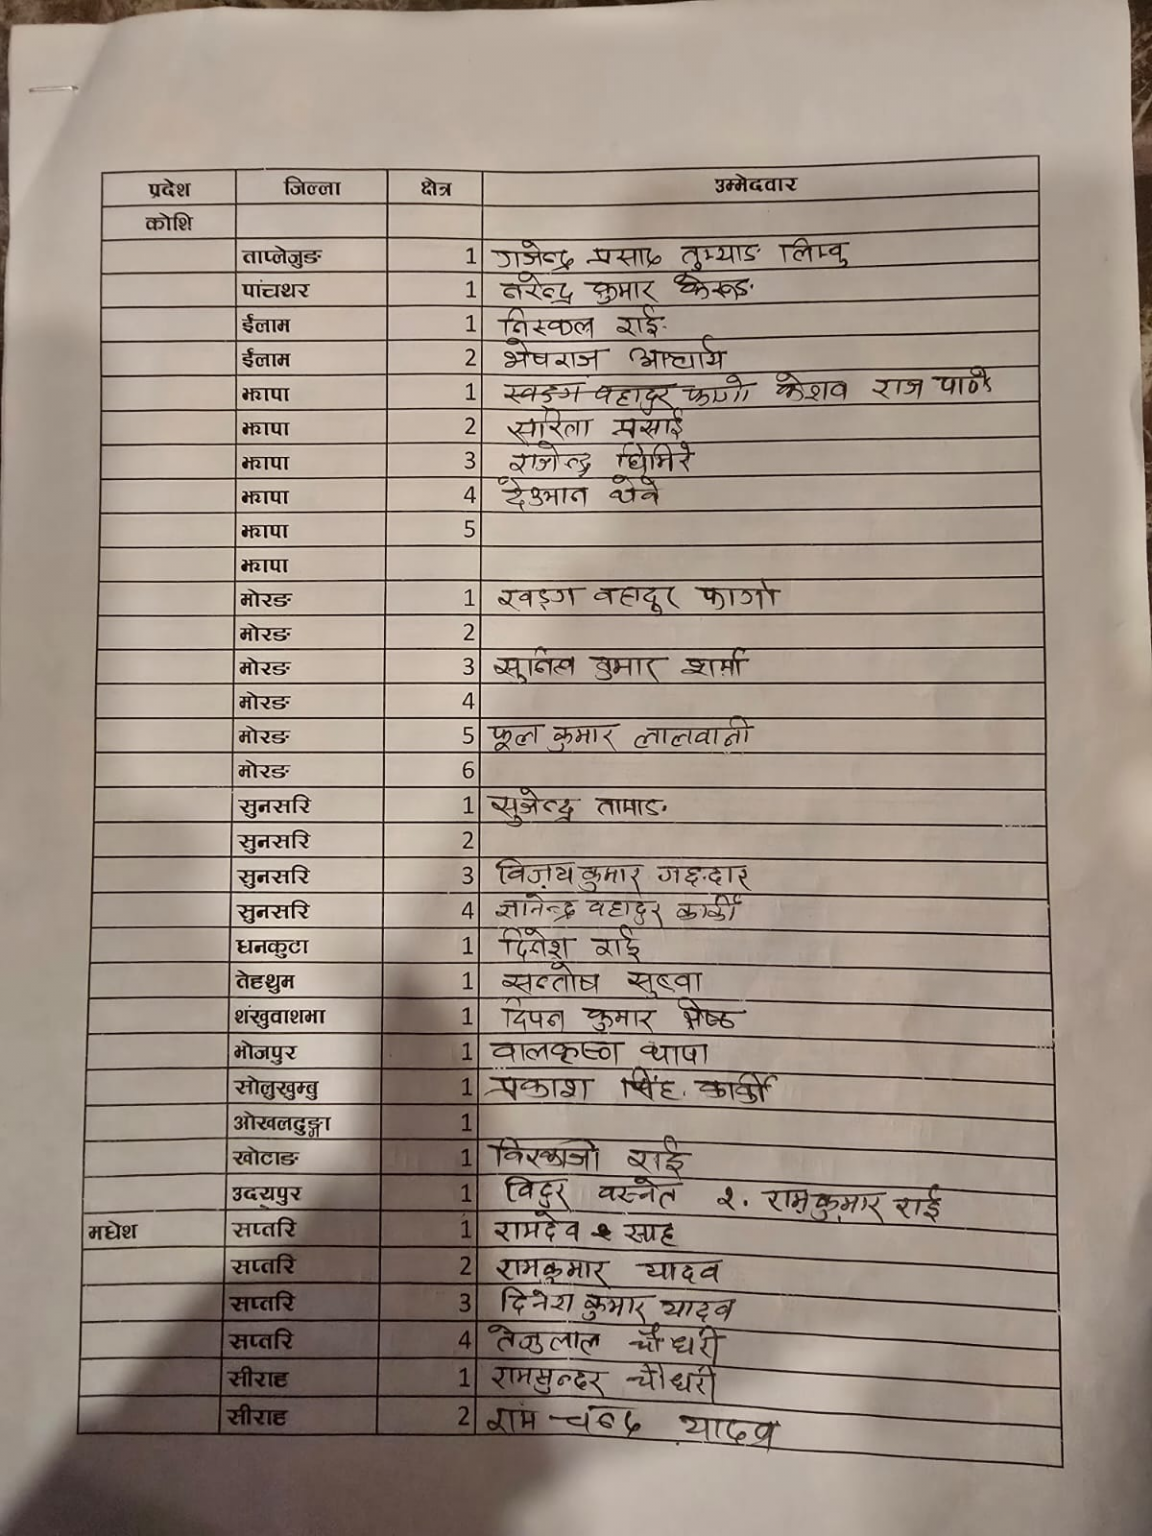 प्रदेश जिल्ला क्षेत्र उम्मेदवार
कोशि
ताप्लेजुङ 1 गजेन्द्र प्रसाद तुम्याङ लिम्बु
पांचथर 1 नरेन्द्र कुमार केरूङ
ईलाम 1 निस्कल राई
ईलाम 2 भेषराज आचार्य
झापा 1 खड्ग वहादुर फागो केशव राज पाण्डे
झापा 2 सरिता प्रसाई
झापा 3 राजेन्द्र घिमिरे
झापा 4 देउमान थेवे
झापा 5
झापा
मोरङ 1 खड्ग वहादूर फागो
मोरङ 2
मोरङ 3 सुनिल कुमार शर्मा
मोरङ 4
मोरङ 5 फूल कुमार लालवानी
मोरङ 6
सुनसरि 1 सुजेन्द्र तामाङ
सुनसरि 2
सुनसरि 3 विजय कुमार
सुनसरि 4 ज्ञानेन्द्र वहादुर कार्की
धनकुटा 1 दिनेश राई
तेह्थुम 1 सन्तोष सुब्वा
शंखुवाशभा 1 दिपन कुमार श्रेष्ठ
भोजपुर 1 वालकृष्ण थापा
सोलुखुम्बु 1 प्रकाश सिंह कार्की
ओखलढुङ्गा 1
खोटाङ 1 राई
उदयपुर 1 विदुर वस्नेत २. रामकुमार राई
मधेश सप्तरि 1 रामदेव साह
सप्तरि 2 रामकुमार यादव
सप्तरि 3 दिनेश कुमार यादव
सप्तरि 4 तेजुलाल चौधरी
सीराह 1 रामसुन्दर चौधरी
सीराह 2 राम चन्द्र यादव